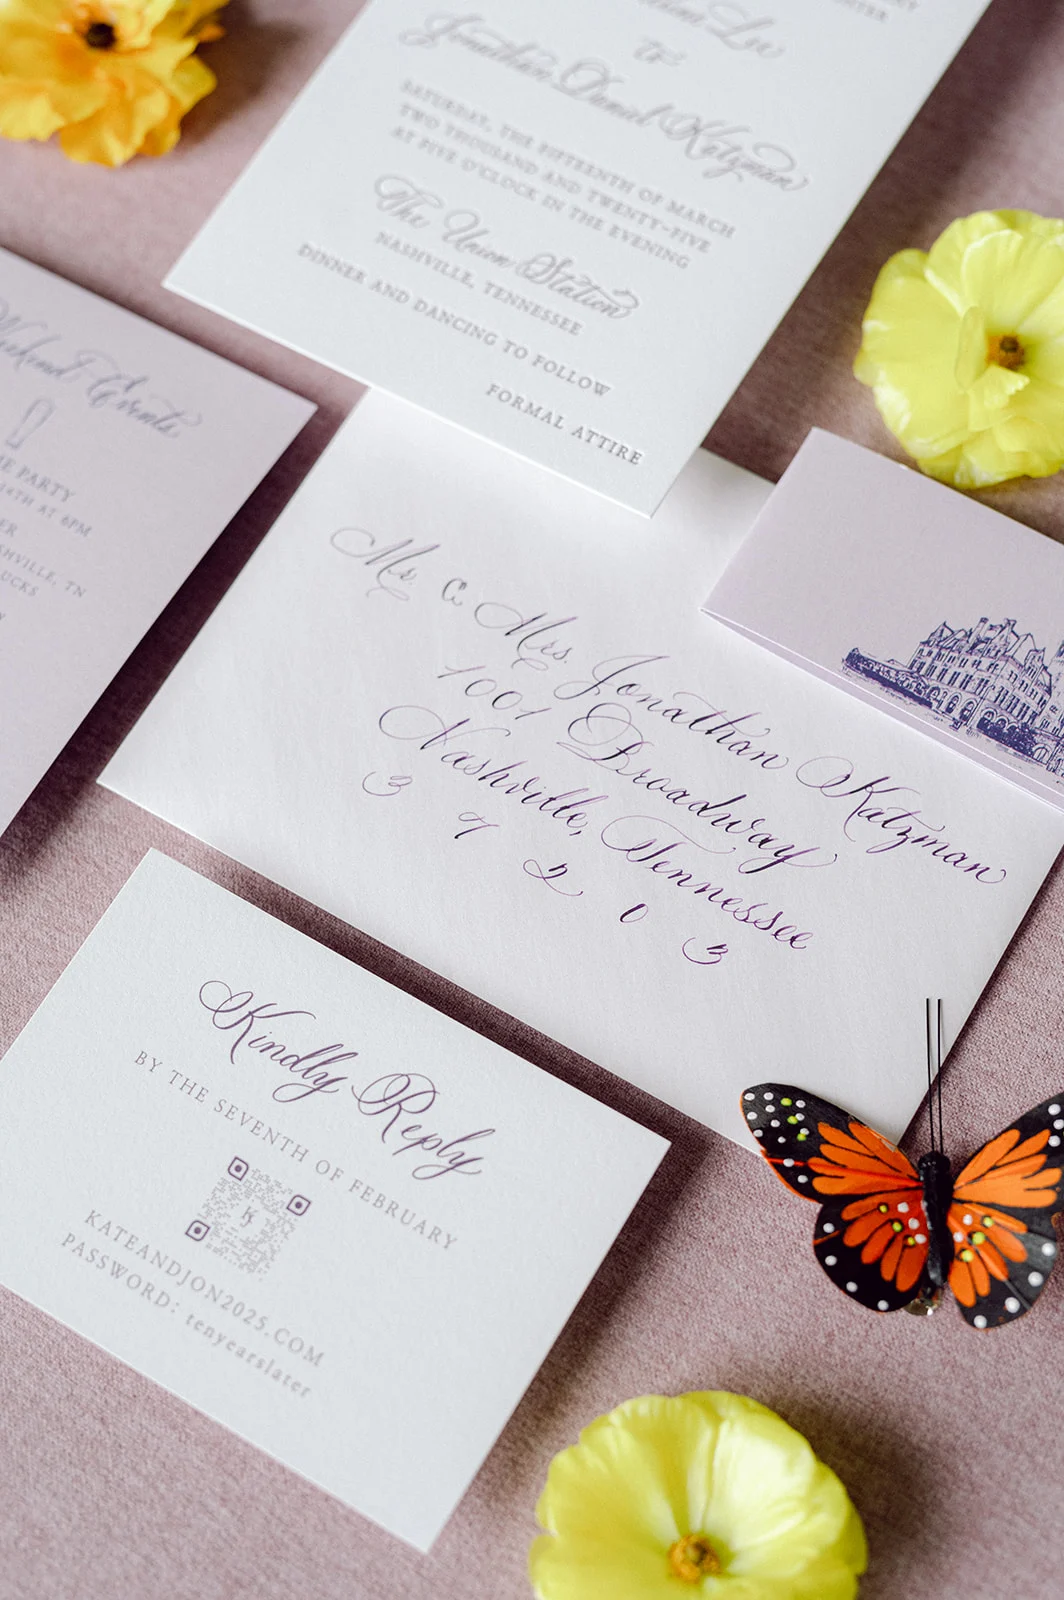 Lee
to
Jonathan Daniel Katzman
SATURDAY, THE FIFTEENTH OF MARCH
TWO THOUSAND AND TWENTY-FIVE
AT FIVE O'CLOCK IN THE EVENING
The Union Station
NASHVILLE, TENNESSEE
DINNER AND DANCING TO FOLLOW
FORMAL ATTIRE
Weekend Events
PARTY
14TH AT 6PM
TN
Mr. & Mrs. Jonathan Katzman
1001 Broadway
Nashville, Tennessee
37203
Kindly Reply
BY THE SEVENTH OF FEBRUARY
KATEANDJON2025.COM
PASSWORD: tenyearslater